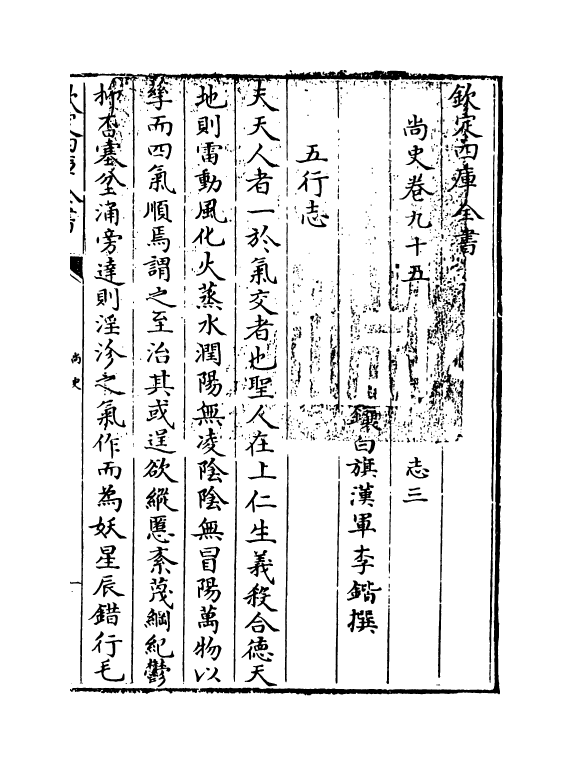 欽定四庫全書
尚史卷九十五 志三
鑲白旗漢軍李鍇撰
五行志
夫天人者一於氣交者也聖人在上仁生義殺合德天
地則雷動風化火蒸水潤陽無凌陰陰無冒陽萬物以
孳而四氣順焉謂之至治其或逞欲縱慝紊蔑綱紀鬱
抑否塞坌涌旁達則淫沴之氣作而為妖星辰錯行毛
尚史